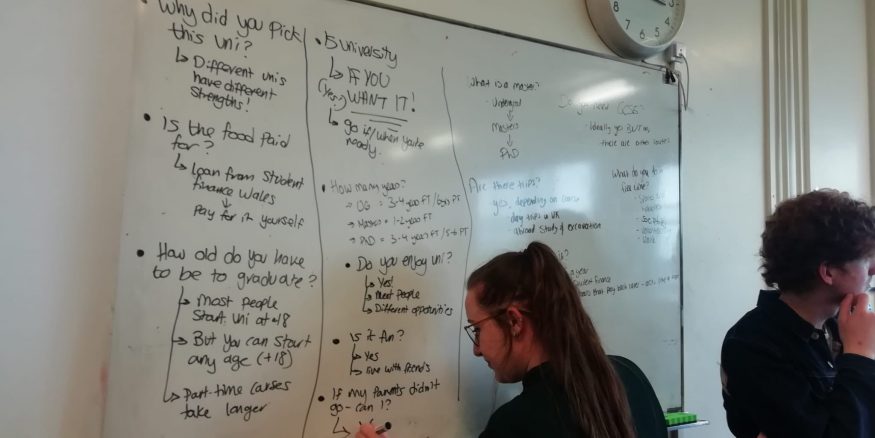 • Why did you pick
this uni?
↳ Different unis
have different
strengths!
• Is the food paid
for?
↳ loan from student
finance Wales
↓
Pay for it yourself
• How old do you have
to be to graduate?
↳ Most people
start uni at 18
→ But you can start
any age (+18)
↳ Part-time courses
take longer
• university
↳ IF YOU
(Yes) WANT IT!
↳ go if/when you're
ready.
• How many years?
→ UG = 3-4 years FT /
→ Masters = 1-2 years FT
→ PhD = 3-4 years FT / 5-6 PT
• Do you enjoy uni?
↳ Yes!
↳ Meet People
↳ Different opportunities
• Is it fun?
↳ Yes
↳ live with friends
• If my parents didn't
go - can I?
↳
What is a masters?
· Undergrad
↓
Masters
↓
PhD
Do you need GCSEs?
- Ideally yes BUT
there are other routes
Are there trips?
yes, depending on course
- day trips in UK
- abroad study & excavation
What do you
year
student finance
8
7
6
5
4
3